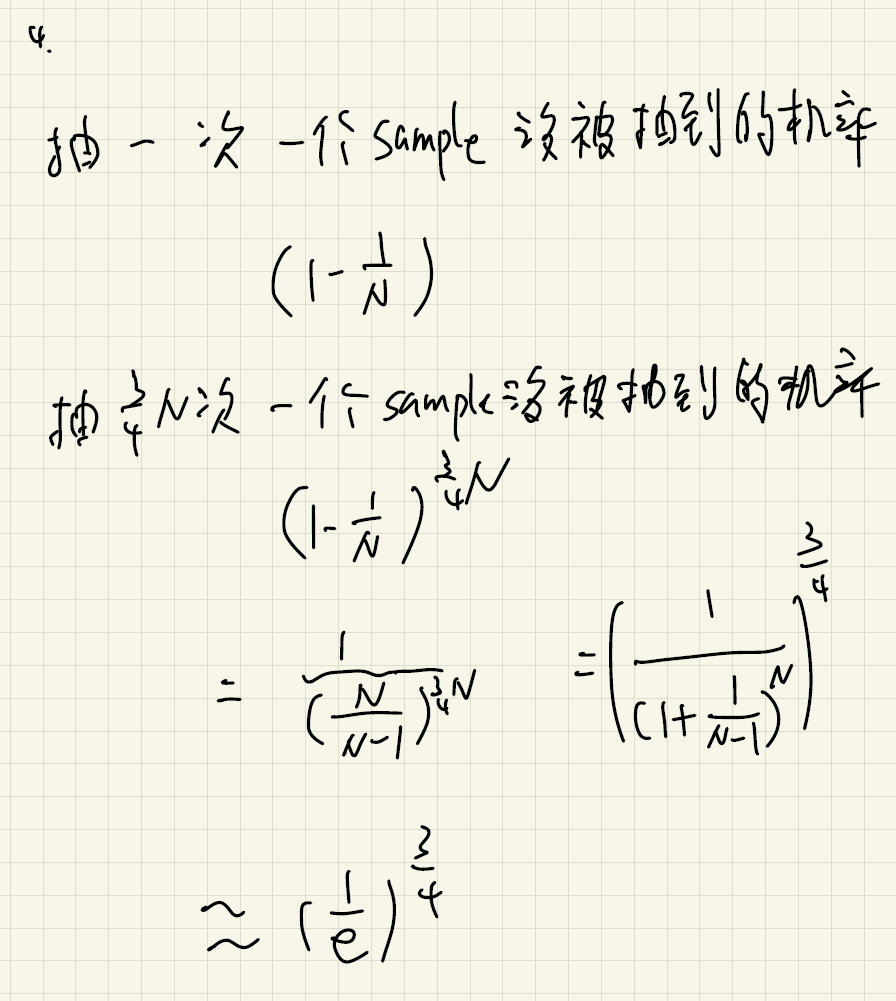 4.
抽一次 一个sample 沒被抽到的机率
(1-1/N)
抽3/4N次 一个sample沒被抽到的机率
(1-1/N)^(3/4N)
= 1/(N/(N-1))^(3/4N) = (1/(1+1/(N-1))^N)^(3/4)
≈ (1/e)^(3/4)